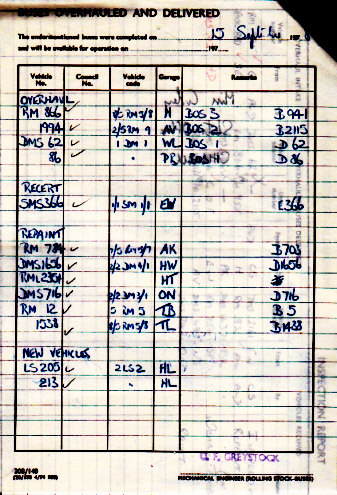 BUSES OVERHAULED AND DELIVERED
The undermentioned buses were completed on 15 Septembe 197
and will be available for operation on 197
Vehicle No. Council No. Vehicle code Garage Remarks
OVERHAUL
RM 866 ✓ 8/5 RM 5/8 N BOS 3 B991
1994 ✓ 2/5 RM 9 AV BOS 2 B2115
DMS 62 ✓ 1 DM 1 WL BOS 1 D 62
86 ✓ " PR BOS 1 D 86
RECERT
SMS 366 ✓ 1/1 SM 1/1 EW E366
REPAINT
RM 784 ✓ 7/5 RM 5/7 AK B703
DMS 1656 ✓ 2/2 DM 4/1 HW D1656
RML 2354 ✓ HT
DMS 716 ✓ 2/2 DM 3/1 ON D716
RM 12 ✓ 5 RM 5 TB B 5
1538 ✓ 8/5 RM 5/8 TL B1433
NEW VEHICLES
LS 205 ✓ 2 LS 2 HL
213 ✓ " HL
INSPECTION REPORT
GREYSTOCK
MECHANICAL ENGINEER (ROLLING STOCK-BUSES)